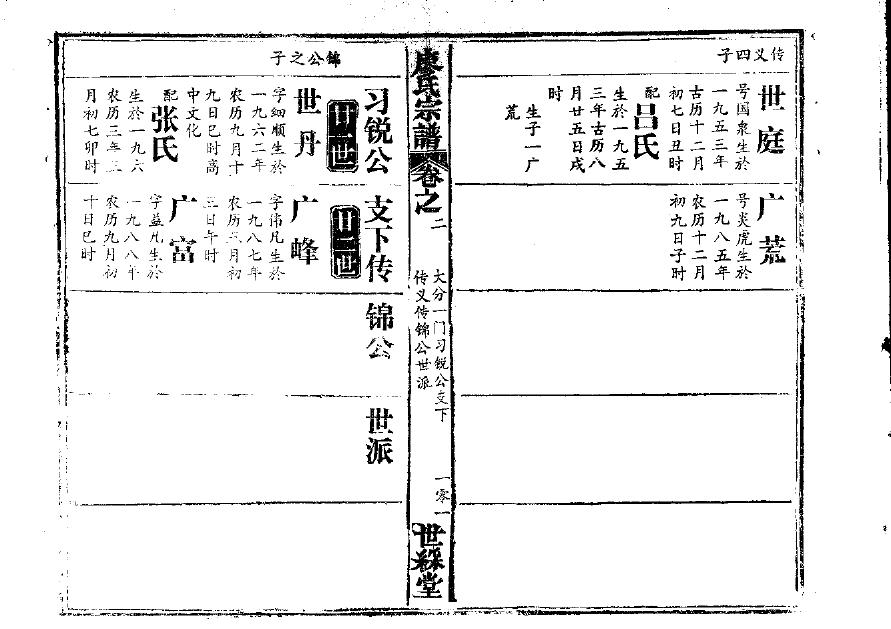 传义四子
世庭
号国衆生於
一九五三年
古历十二月
初七日丑时
配吕氏
生於一九五
三年古历八
月廿五日戌
时
生子一广
荒
广荒
号炎虎生於
一九八五年
农历十二月
初九日子时
廖氏宗譜
卷之二
大分一门习锐公支下
传义传锦公世派
一零一
世綵堂
锦公之子
习锐公
支下传
锦公
世派
廿一世
世丹
字细顺生於
一九六二年
农历九月十
九日巳时高
中文化
配张氏
生於一九六
农历三年三
月初七卯时
廿二世
广峰
字伟凡生於
一九八七年
农历三月初
三日午时
广富
字益凡生於
一九八八年
农历九月初
十日巳时